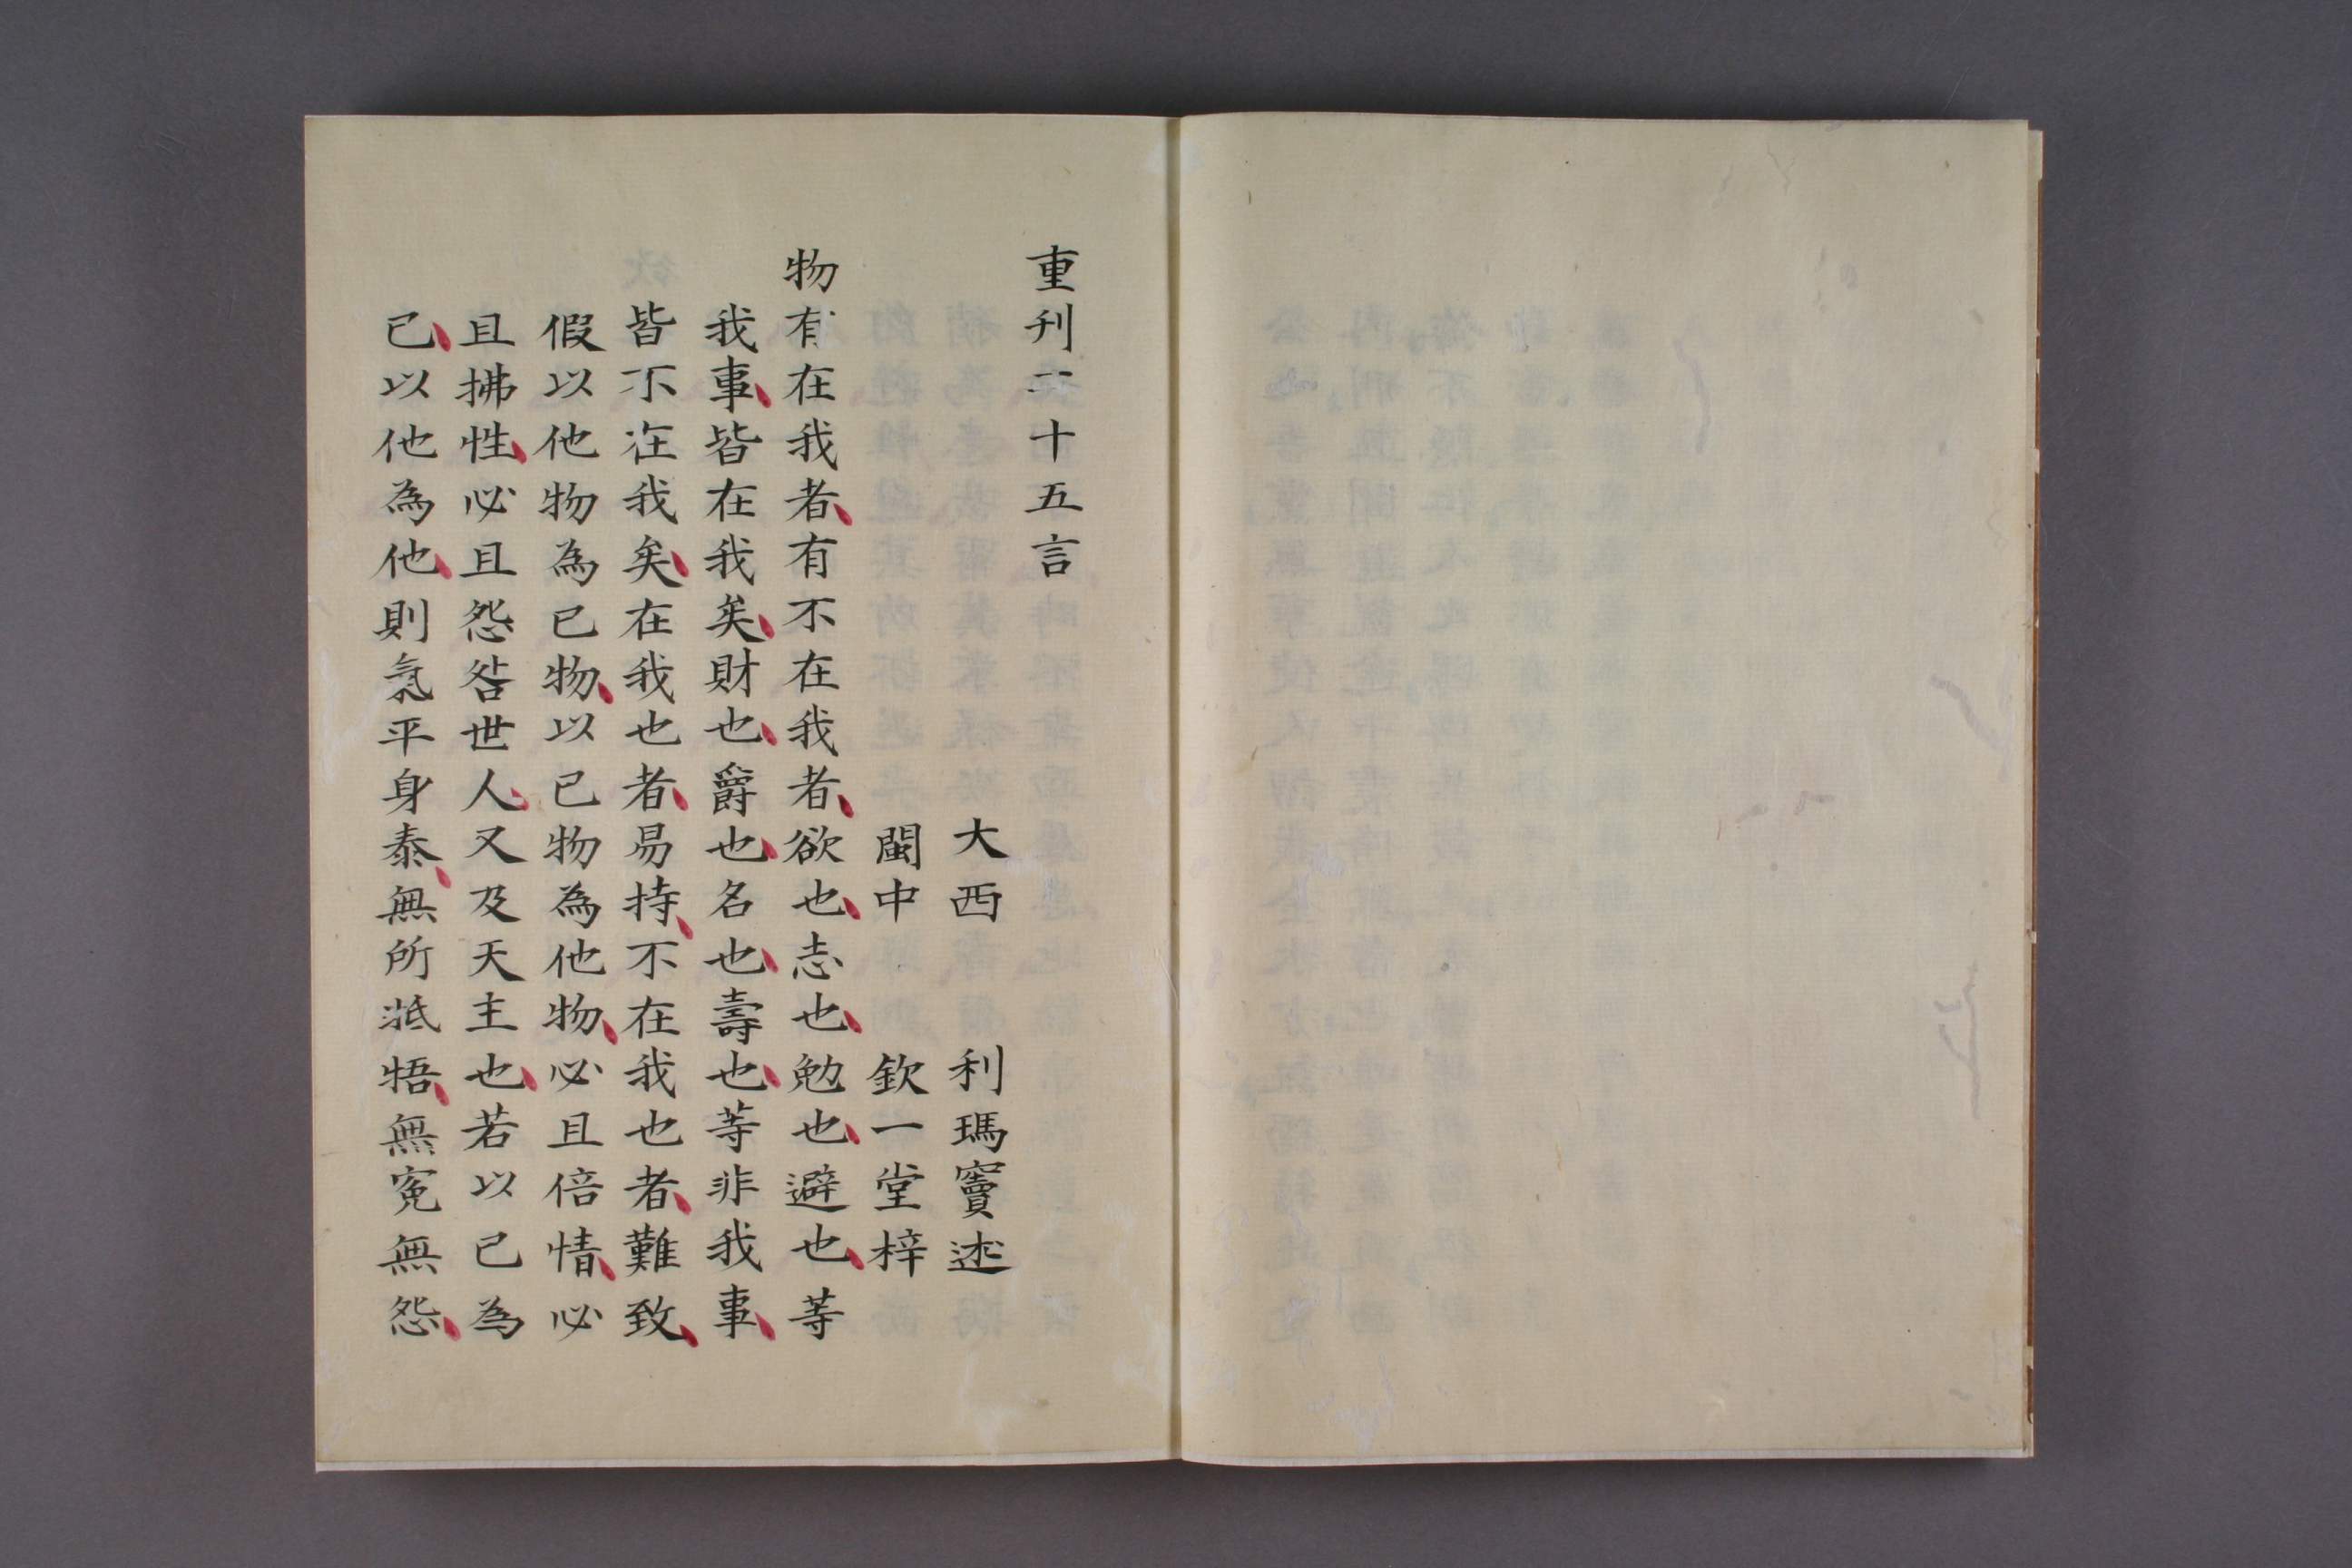 重刊二十五言
大西 利瑪竇述
閩中 欽一堂梓
物有在我者、有不在我者、欲也、志也、勉也、避也、等
我事、皆在我矣、財也、爵也、名也、壽也、等非我事、
皆不在我矣、在我也者、易持、不在我也者、難致、
假以他物為已物、以已物為他物、必且倍情、必
且拂性、必且怨咎世人、又及天主也、若以己為
己、以他為他、則氣平身泰、無所牴牾、無寃無怨、